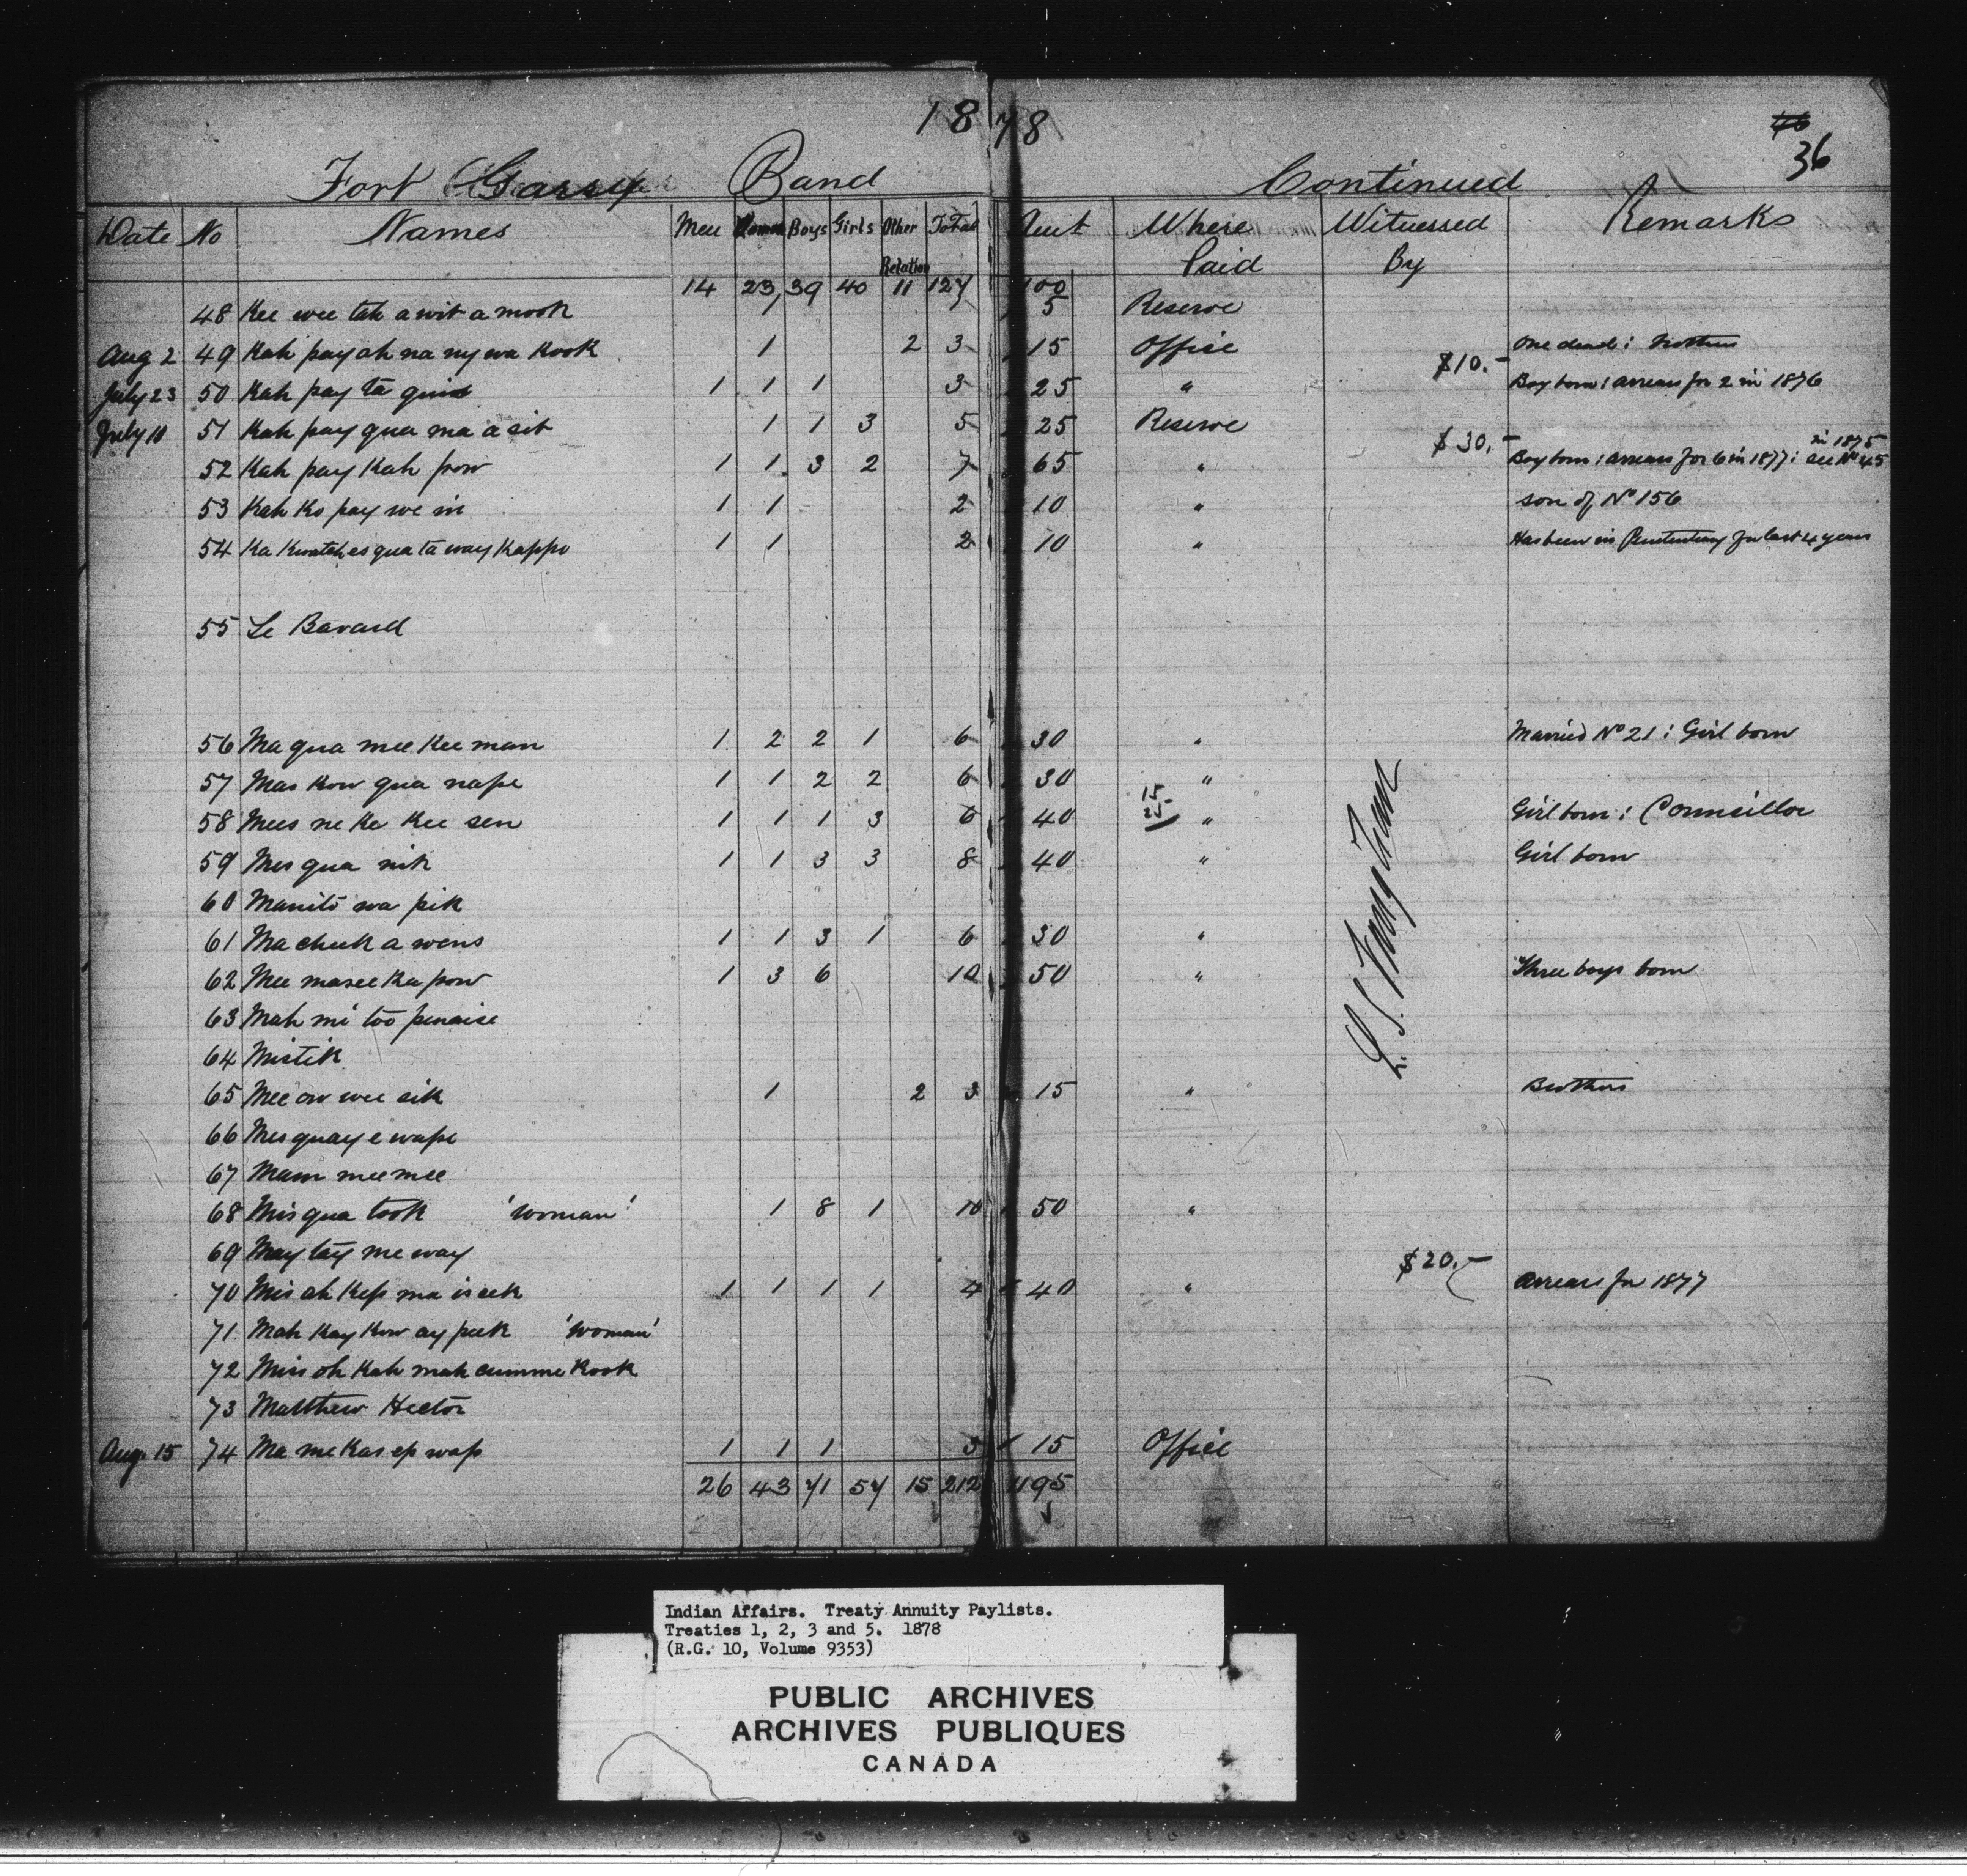 1878
46
36
Fort Garry Band Continued
Date No Names Men Women Boys Girls Other Relation Total Amt Where Paid Witnessed By Remarks
14 23 39 40 11 127 100
48 Kee wee tah a wit a mook 1 1 5 Reserve
Aug 2 49 Kah pay ah na ny wa kook 1 2 3 15 Office One dead :
July 23 50 Kah pay ta 1 1 1 3 25 " $10.- Boy born : arrears for 2 in 1876
July 10 51 Kah pay qua ma a sit 1 1 3 5 25 Reserve
52 Kah pay Kah pow 1 1 3 2 7 65 " $30.- Boy born : arrears for 6 in 1877 : see No 45 in 1875
53 Kah Ko pay we in 1 1 2 10 " son of No 156
54 Ka Kwatch es qua ta way Kappo 1 1 2 10 " Has been in Penitentiary for last 4 years
55 Le Bavard
56 Ma qua mee Kee man 1 2 2 1 6 30 " Married No 21 : Girl born
57 Mas Kow qua nape 1 1 2 2 6 30 "
58 Mees ne Ke Kee sen 1 1 1 3 6 40 15 25 " Girl born : Councillor
59 Mes qua nik 1 1 3 3 8 40 " Girl born
60 Manito wa pik
61 Ma cheek a wens 1 1 3 1 6 30 "
62 Mee masee Ka pow 1 3 6 10 50 " Three boys born
63 Mah mi too penaise
64 Mistik
65 Mee ow wee sik 1 2 3 15 " Brothers
66 Mes quay e wape
67 Mam mee mee
68 Mis qua took 'woman' 1 8 1 10 50 "
69 May tay me way
70 Mis ah Kep ma is eek 1 1 1 1 4 40 " $20.- arrears for 1877
71 Mah Kay Kow ay peek 'woman'
72 Mis oh Kah mah cumme Kook
73 Matthew Hector
Aug. 15 74 Ma me Kas ep wap 1 1 1 3 15 Office
26 43 71 57 15 212 1195
Indian Affairs. Treaty Annuity Paylists.
Treaties 1, 2, 3 and 5. 1878
(R.G. 10, Volume 9353)
PUBLIC ARCHIVES
ARCHIVES PUBLIQUES
CANADA